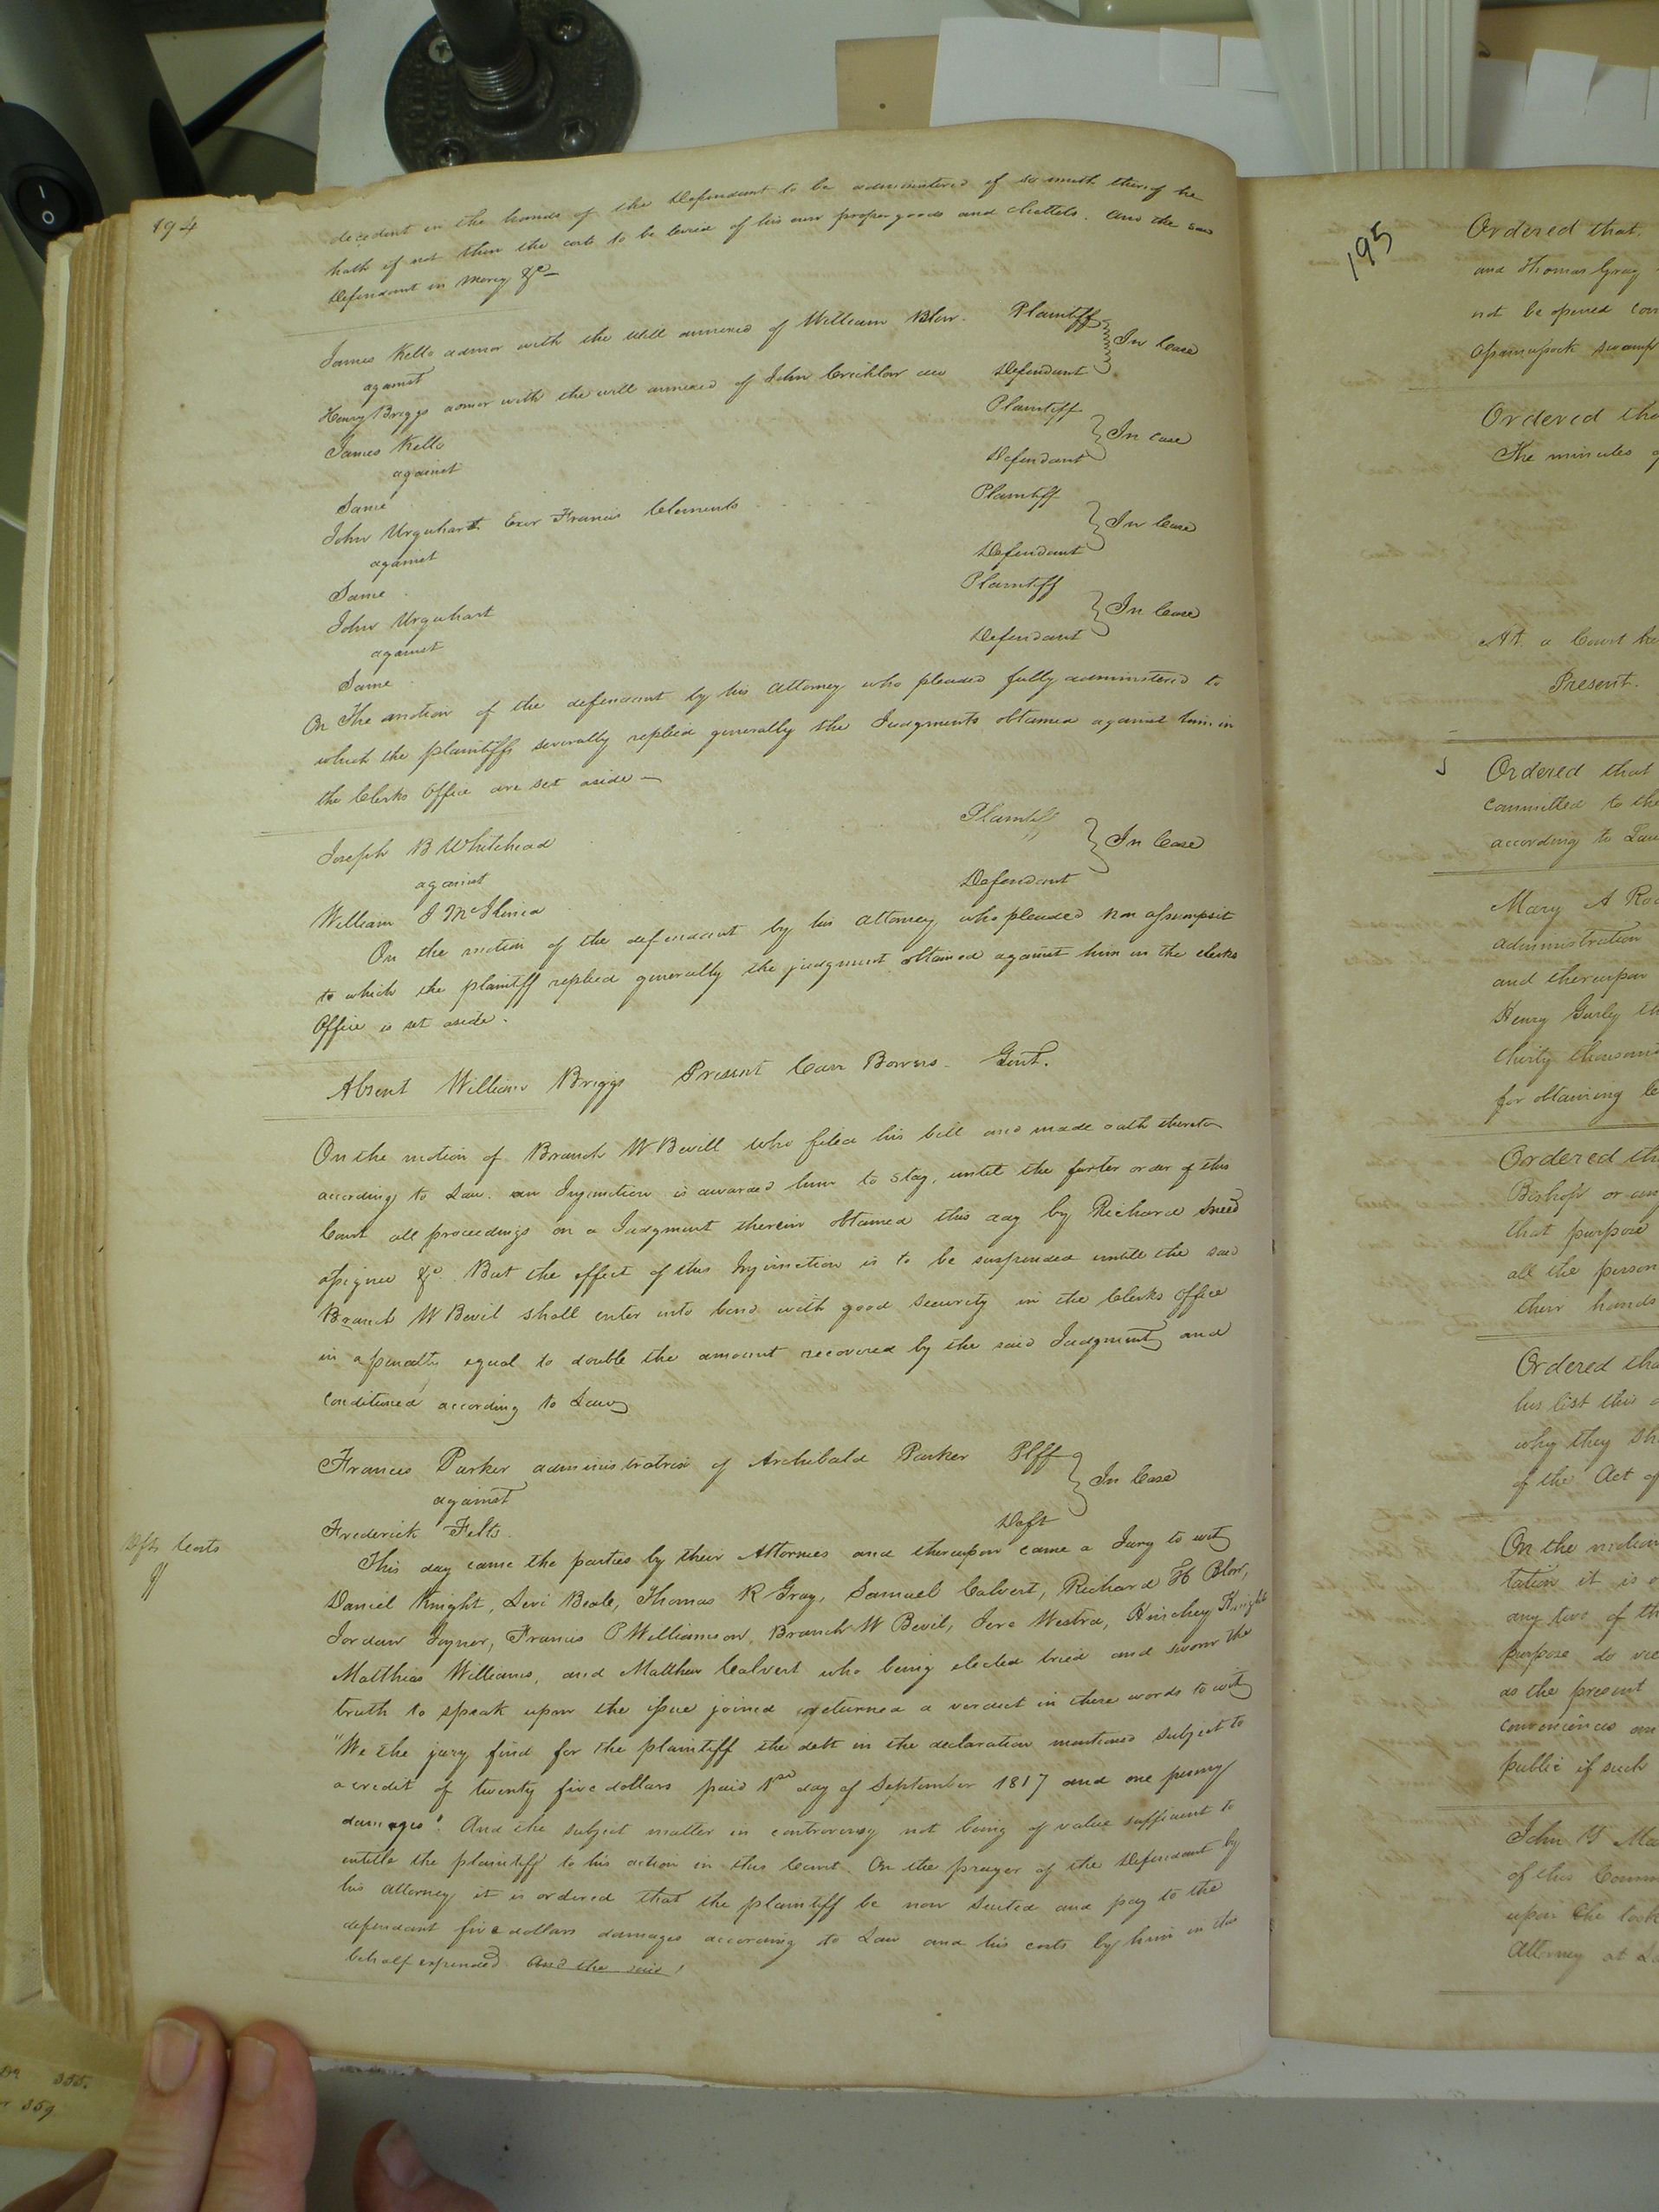 194
decedent in the hands of the Defendant to be administered if so much thereof he
hath if not then the costs to be levied of his own proper goods and chattels. And the said
Defendant in Mercy &c
James Kello admor with the will annexed of William Blow. Plaintiff
against In Case
Henry Briggs admor with the will annexed of John Crichlow dec Defendant
James Kello Plaintiff
against In case
Same Defendant
John Urquhart Exor Francis Clements Plaintiff
against In Case
Same Defendant
John Urquhart Plaintiff
against In Case
Same Defendant
On The motion of the defendant by his attorney who pleaded fully administered to
which the plaintiffs severally replied generally the Judgments obtained against him in
the Clerks office are set aside
Joseph B Whitehead Plaintiff
against In Case
William J Defendant
On the motion of the defendant by his attorney who pleaded non assumpsit
to which the plaintiff replied generally the judgment obtained against him in the clerks
Office is set aside.
Absent William Briggs Present Carr Bowers. Gent.
On the motion of Branch W Bevill who filed his bill and made oath thereto
according to Law. an Injunction is awarded him to stay, until the furter order of this
Court all proceedings on a Judgment therein obtained this day by Richard Sneed
assignee &c. But the effect of this Injunction is to be suspended untill the said
Branch W Bevil shall enter into bond with good security in the Clerks office
in a penalty equal to double the amount recovered by the said Judgment and
conditioned according to Law
Frances Parker administratrix of Archibald Parker Plff
against In Case
Frederick Felts. Deft
Dfts Costs
This day came the parties by their Attornies and thereupon came a Jury to wit
Daniel Knight, Levi Beale, Thomas R Gray, Samuel Calvert, Richard H Blow,
Jordan Joyner, Francis P Williamson, Branch W Bevil, Jere Westra, Hinchey Knight
Matthias Williams, and Matthew Calvert who being elected tried and sworn the
truth to speak upon the issue joined returned a verdict in these words to wit
"We the jury find for the plaintiff the debt in the declaration mentioned subject to
a credit of twenty five dollars paid 1st day of September 1817 and one penny
damages". And the subject matter in controversy not being of value sufficient to
entitle the plaintiff to his action in this Court. On the prayer of the Defendant by
his attorney it is ordered that the plaintiff be non suited and pay to the
defendant five dollars damages according to Law and his costs by him in this
behalf expended. And the said
195
Ordered that.
and Thomas Gray
not be opened
swamp
Ordered
The minutes
At a Court
Present.
Ordered that
committed to the
according to
Mary A
administration
and thereupon
Henry Gurley
thirty thousand
for obtaining
Ordered
Bishop or any
that purpose
all the person
their hands
Ordered
his list this
why they
of the Act of
On the motion
it is
any two of
purpose do
as the present
conveniences
public if such
John Y
of this
upon the
Attorney at
355.
359